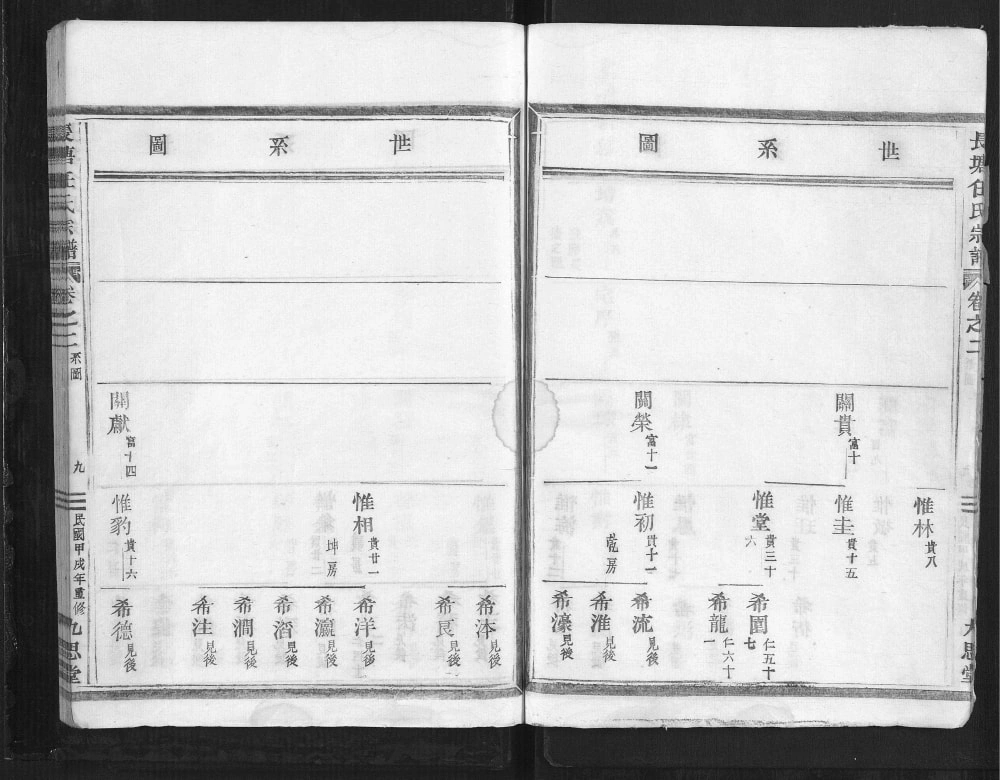 長塘任氏宗譜
卷之二
九思堂
世系圖
惟林 貴八
關貴 富十
惟圭 貴十五
惟堂 貴三十六
希園 仁五十七
希龍 仁六十一
關榮 富十一
惟初 貴十一
乾房
希流 見後
希淮 見後
希濠 見後
世系圖
希沐 見後
希艮 見後
惟相 貴廿一
坤房
希洋 見後
希瀛 見後
希潪 見後
希澗 見後
希洼 見後
關獻 富十四
惟豹 貴十六
希德 見後
長塘任氏宗譜
卷之二
系圖
九
民國甲戌年重修
九思堂